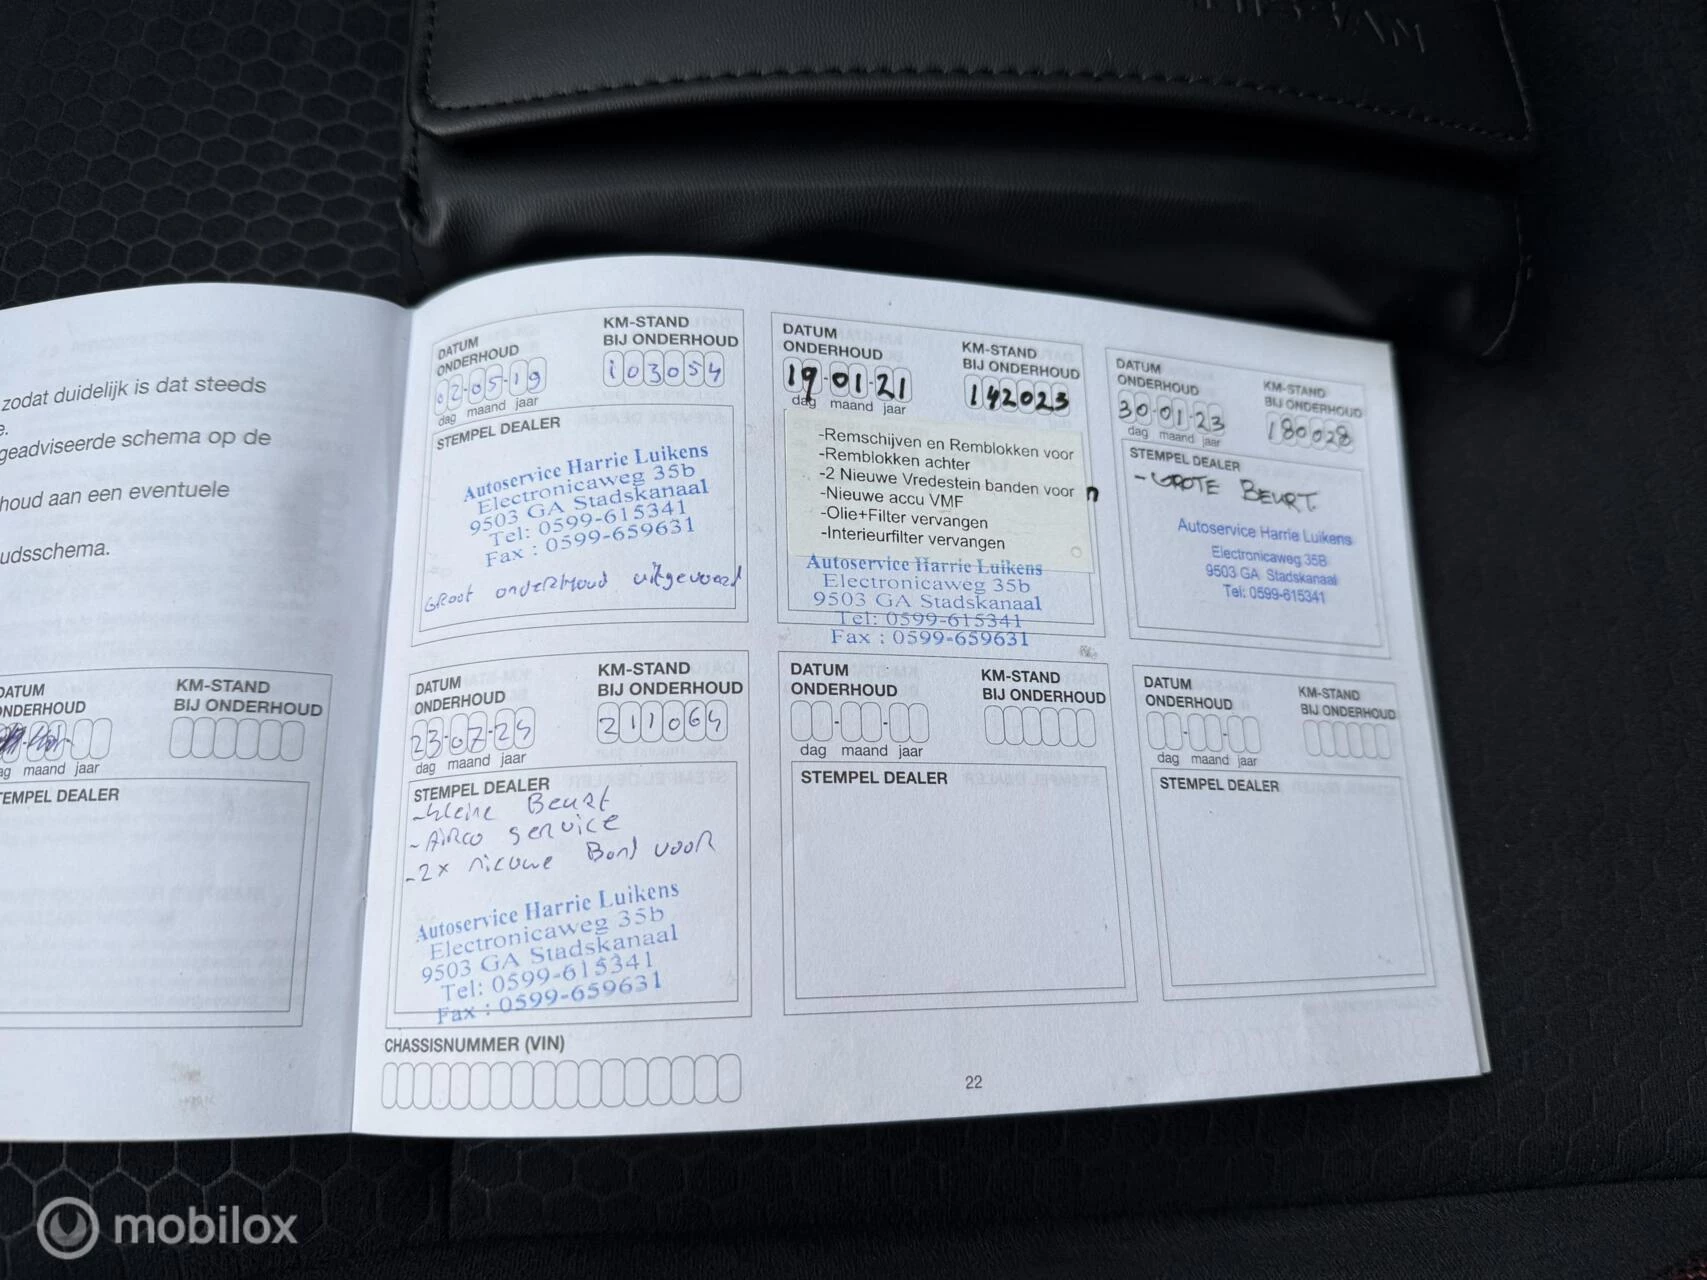 zodat duidelijk is dat steeds
e.
geadviseerde schema op de
houd aan een eventuele
udsschema.
DATUM
ONDERHOUD
KM-STAND
BIJ ONDERHOUD
ag maand jaar
TEMPEL DEALER
DATUM
ONDERHOUD
KM-STAND
BIJ ONDERHOUD
02-05-19
103054
dag maand jaar
STEMPEL DEALER
Autoservice Harrie Luikens
Electronicaweg 35b
9503 GA Stadskanaal
Tel: 0599-615341
Fax : 0599-659631
Groot onderhoud uitgevoerd
DATUM
ONDERHOUD
KM-STAND
BIJ ONDERHOUD
19-01-21
142023
dag maand jaar
-Remschijven en Remblokken voor
-Remblokken achter
-2 Nieuwe Vredestein banden voor
-Nieuwe accu VMF
-Olie+Filter vervangen
-Interieurfilter vervangen
Autoservice Harrie Luikens
Electronicaweg 35b
9503 GA Stadskanaal
Tel: 0599-615341
Fax : 0599-659631
DATUM
ONDERHOUD
KM-STAND
BIJ ONDERHOUD
30-01-23
180028
dag maand jaar
STEMPEL DEALER
- GROTE BEURT
Autoservice Harrie Luikens
Electronicaweg 35B
9503 GA Stadskanaal
Tel: 0599-615341
DATUM
ONDERHOUD
KM-STAND
BIJ ONDERHOUD
23-07-24
211064
dag maand jaar
STEMPEL DEALER
-Kleine Beurt
-AIRCO service
-2x nieuwe Band voor
Autoservice Harrie Luikens
Electronicaweg 35b
9503 GA Stadskanaal
Tel: 0599-615341
Fax : 0599-659631
DATUM
ONDERHOUD
KM-STAND
BIJ ONDERHOUD
dag maand jaar
STEMPEL DEALER
DATUM
ONDERHOUD
KM-STAND
BIJ ONDERHOUD
dag maand jaar
STEMPEL DEALER
CHASSISNUMMER (VIN)
22
mobilox